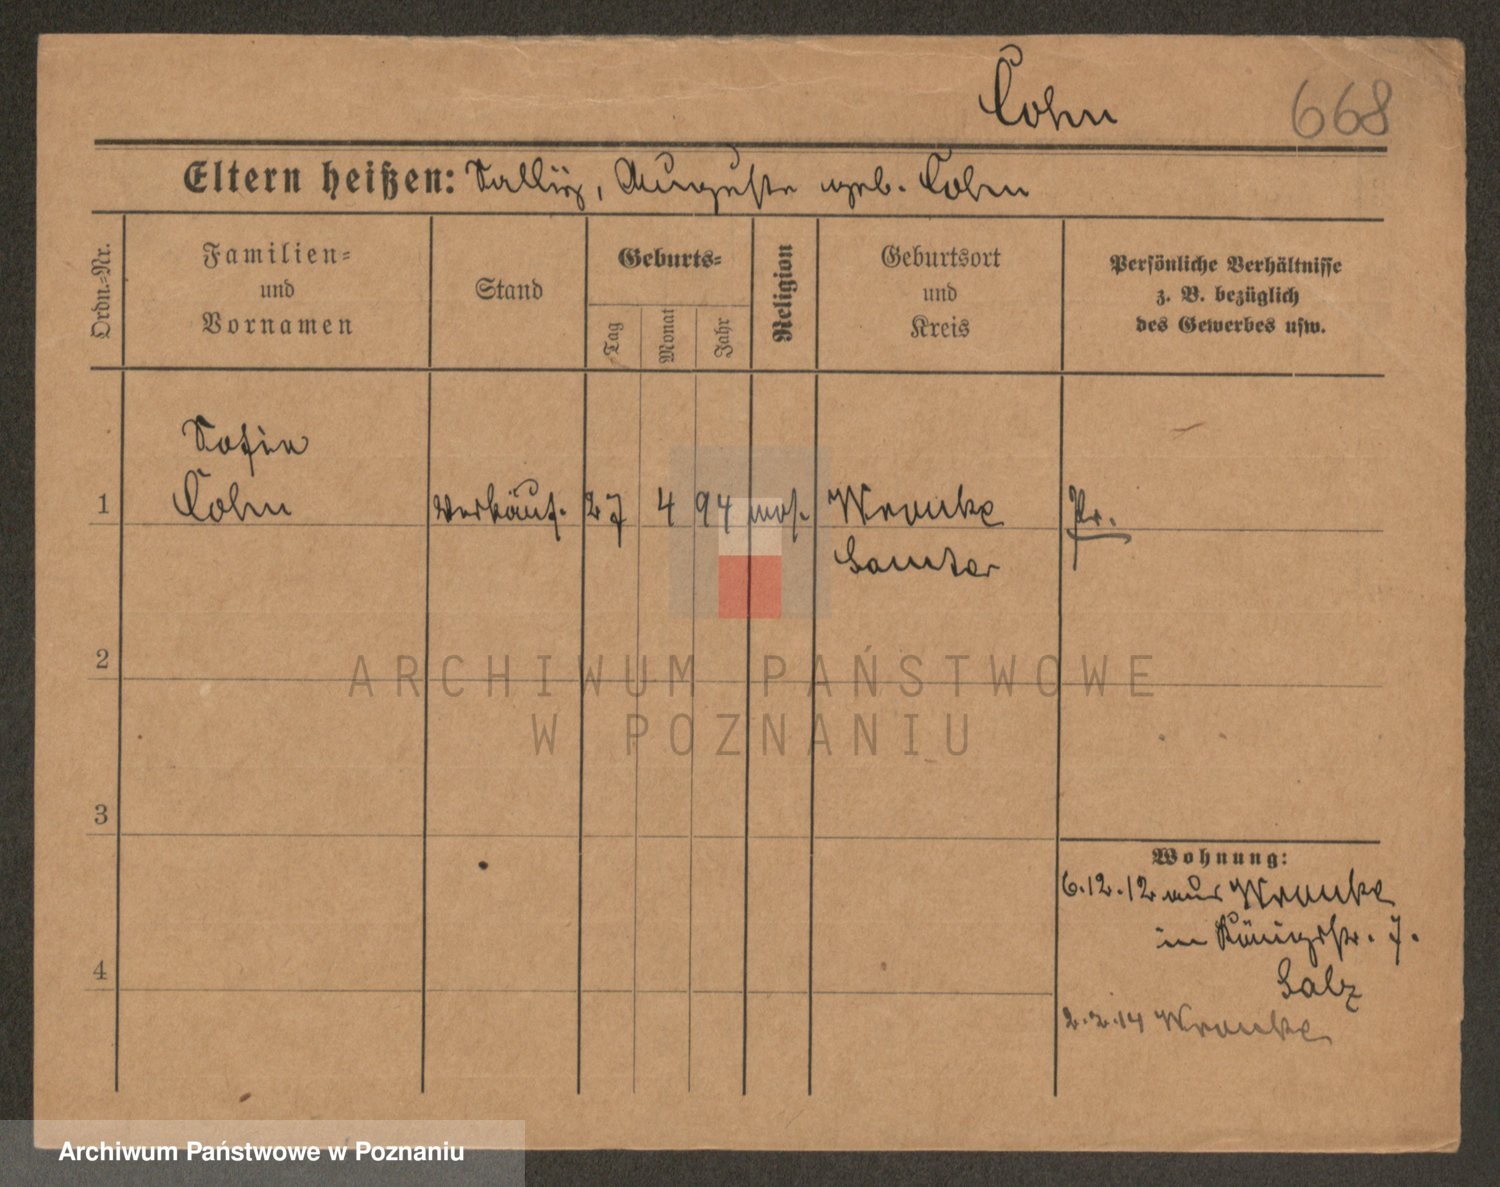 Cohn 668
Eltern heißen: Sally, Auguste geb. Cohn
Ordn.-Nr.
Familien-
und
Vornamen
Stand
Geburts-
Tag
Monat
Jahr
Religion
Geburtsort
und
Kreis
Persönliche Verhältnisse
z. B. bezüglich
des Gewerbes usw.
Sofie
1 Cohn Verkäuf. 27 4 94 mos. Wronke Pr.
Samter
2
ARCHIWUM PAŃSTWOWE
W POZNANIU
3
Wohnung:
6.12.12 aus Wronke
in Königsstr. 7.
4
Salz
2.2.14 Wronke
Archiwum Państwowe w Poznaniu